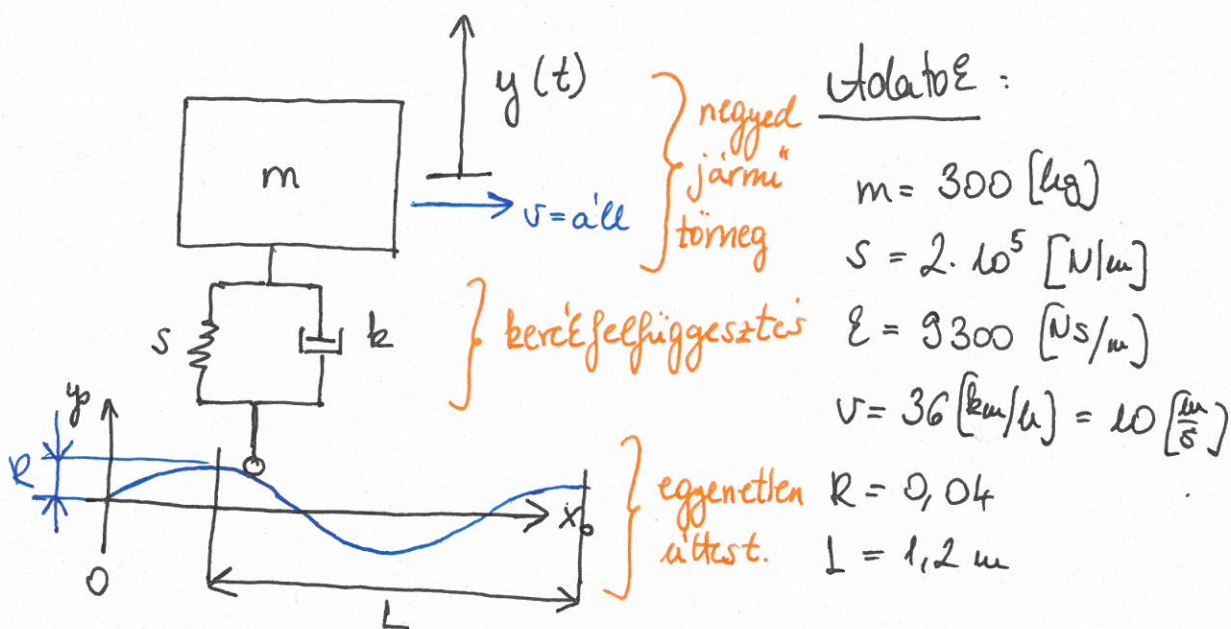 y(t)
m
v=áll
negyed
jármű
tömeg
s
k
kerékfelfüggesztés
y₀
R
0
x₀
L
egyenetlen
úttest.
Adatok :
m = 300 [kg]
s = 2·10⁵ [N/m]
k = 9300 [Ns/m]
v = 36 [km/h] = 10 [m/s]
R = 0,04
L = 1,2 m